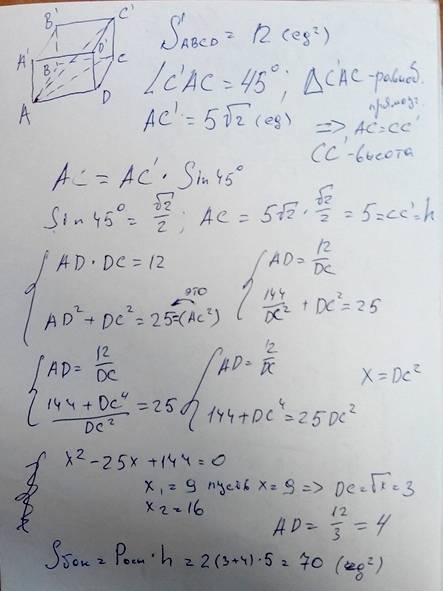 B' C'
A' D'
B C
A D
S ABCD = 12 (ед²)
∠C'AC = 45°; △C'AC - равноб. прямоуг.
AC' = 5√2 (ед) => AC = CC'
CC' - высота
AC = AC' · Sin 45°
Sin 45° = √2/2; AC = 5√2 · √2/2 = 5 = CC' = h
{ AD · DC = 12 { AD = 12/DC
это
AD² + DC² = 25 = (AC²) 144/DC² + DC² = 25
{ AD = 12/DC { AD = 12/DC X = DC²
(144 + DC⁴)/DC² = 25 144 + DC⁴ = 25DC²
X² - 25x + 144 = 0
x₁ = 9 пусть x = 9 => DC = √x = 3
x₂ = 16
AD = 12/3 = 4
Sбок = Pосн · h = 2(3+4) · 5 = 70 (ед²)